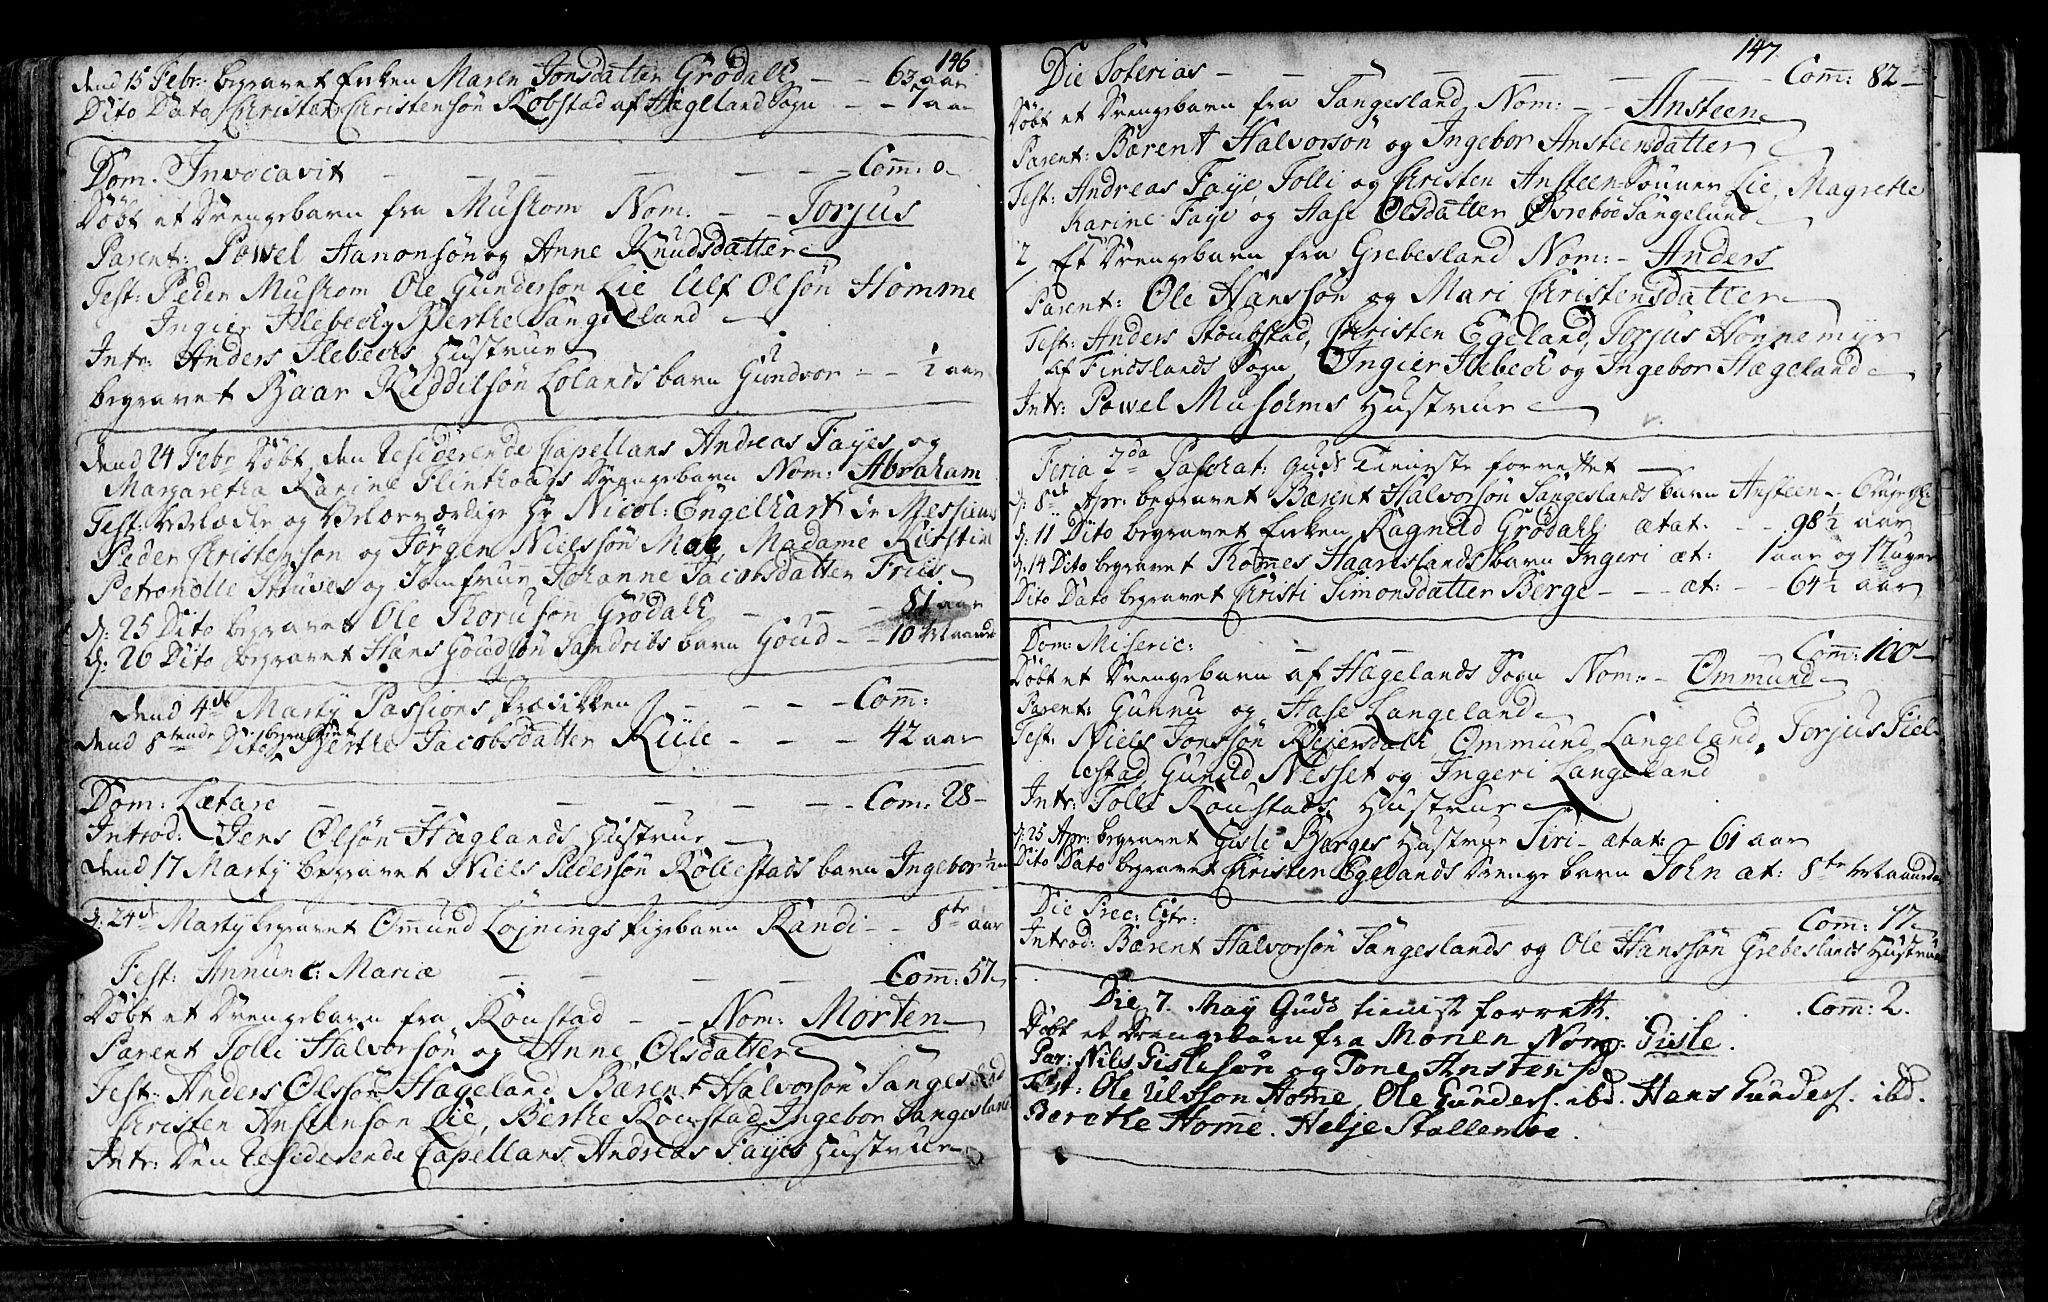 146
dend 15 Febr: begravet Enken Maren Jonsdatter Grödahl - - 63 aar
Dito Dato Christen Christensön Röbstad af Hægeland Sogn - - 7 aar
Dom. Invocavit - - - - - - Com̄: 0
Döbt et Drengebarn fra Muskom Nom: - - Torjus
Parent: Powel Aanonsön og Anne Knudsdatter
Test: Peder Muskom Ole Gundersön Lie Ulf Olsön Homme
Ingier Ilebeck Berthe Sangesland
Intr: Anders Ilebecks Hustrue
begravet Baar Kiddilsön Lolands barn Gundvor - - 1/2 aar
dend 24 Febr Döbt den Residerende Capellans Andreas Fayes og
Margaretha Karine Flinthougs Drengebarn Nom: Abraham
Test: Velædle og Velærværdige Hr Nicol: Engelhart Sr Messieurs
Peder Christensön og Jörgen Nielssön Moe, Madame Kirstine
Petronelle Struves og Jomfrue Johanne Jacobsdatter Friis
d: 25 Dito begravet Ole Thorusön Grödahl - - - 81 aar
d: 26 Dito begravet Hans Goudsön Sandribs barn Goud - - 10 Maaneder
dend 4de Marty Passions Prædikken - - - - Com̄:
dend 8tende Dito begravet Berthe Jacobsdatter Kule - - - 42 aar
Dom: Lætare - - - - - - Com: 28
Introd: Jens Olsön Haglands Hustrue
dend 17 Marty begravet Niels Pedersön Röllestads barn Ingebor 1/2 aar
d: 24de Marty begravet Om̄und Löjnings Pigebarn Randi - - 8te aar
Fest: Annunc: Mariæ - - - - Com̄: 57
Döbt et Drengebarn fra Roustad - - Nom: Morten
Parent Tolli Halvorsön og Anne Olsdatter
Test: Anders Olssön Hageland, Bærent Halvorsön Sangesland
Christen Anstensön Lie, Berthe Roustad, Ingebor Sangesland
Intr: Den Residerende Capellans Andreas Fayes Hustrue
147
Die Soterias - - - - - - Com̄: 82
Döbt et Drengebarn fra Sangesland Nom: - - Ansteen
Parent: Bærent Halvorsön og Ingebor Ansteensdatter
Test: Andreas Faye, Tolli og Christen Ansteen Sönner Lie, Magrethe
Karine Faye og Aase Olsdatter Øvreböe Sangelund
2 Et Drengebarn fra Grebesland Nom: - Anders
Parent: Ole Hanssön og Mari Christensdatter
Test: Anders Stoubstad, Christen Egeland, Torjus Hönnemyr
af Findslands Sogn, Ingier Ilebeck og Ingebor Hægeland
Intr: Powel Muskoms Hustrue
Feria 2da Paschat: Guds Tieneste forrettet
d: 8de Apr: begravet Bærent Halvorsön Sangeslands barn Ansteen - 6 Uger gl:
d: 11 Dito begravet Enken Ragnild Grödahl ætat: - - 98 1/2 aar
d: 14 Dito begravet Thomes Haareslands barn Ingeri æt: 1 aar og 17 uger
Dito Dato begravet Christi Simonsdatter Berge - - - æt: - - 64 1/2 aar
Dom: Miseric: - - - Com̄: 100
Döbt et Drengebarn af Hægelands Sogn Nom: - Om̄und
Parent: Gunnu og Aase Langeland
Test: Niels Jonssön Reiersdahl, Om̄und Langeland, Torjus Fiel-
lestad, Gunild Nesset og Ingeri Langeland
Intr: Tolli Roustads Hustrue
d: 25 Apr: begravet Gisli Berges Hustrue Siri - ætat: - 61 aar
Dito Dato begravet Christen Egelands Drenge barn John æt: 8te Maaneder
Die Prec: Extr: Com̄: 17
Introd: Bærent Halvorsön Sangeslands og Ole Hanssön Grebeslands Hustruer
Die 7. May Guds tienest forrett. Com̄: 2.
Döbt et Drengebarn fra Monen Nom: Gisle.
Par: Nils Gislesön og Tone Anstensd
Test: Ole Ulsson Home, Ole Gunders. ibd. Hans Gunders. ibd.
Berethe Hom̄e. Helje Stallemoe.